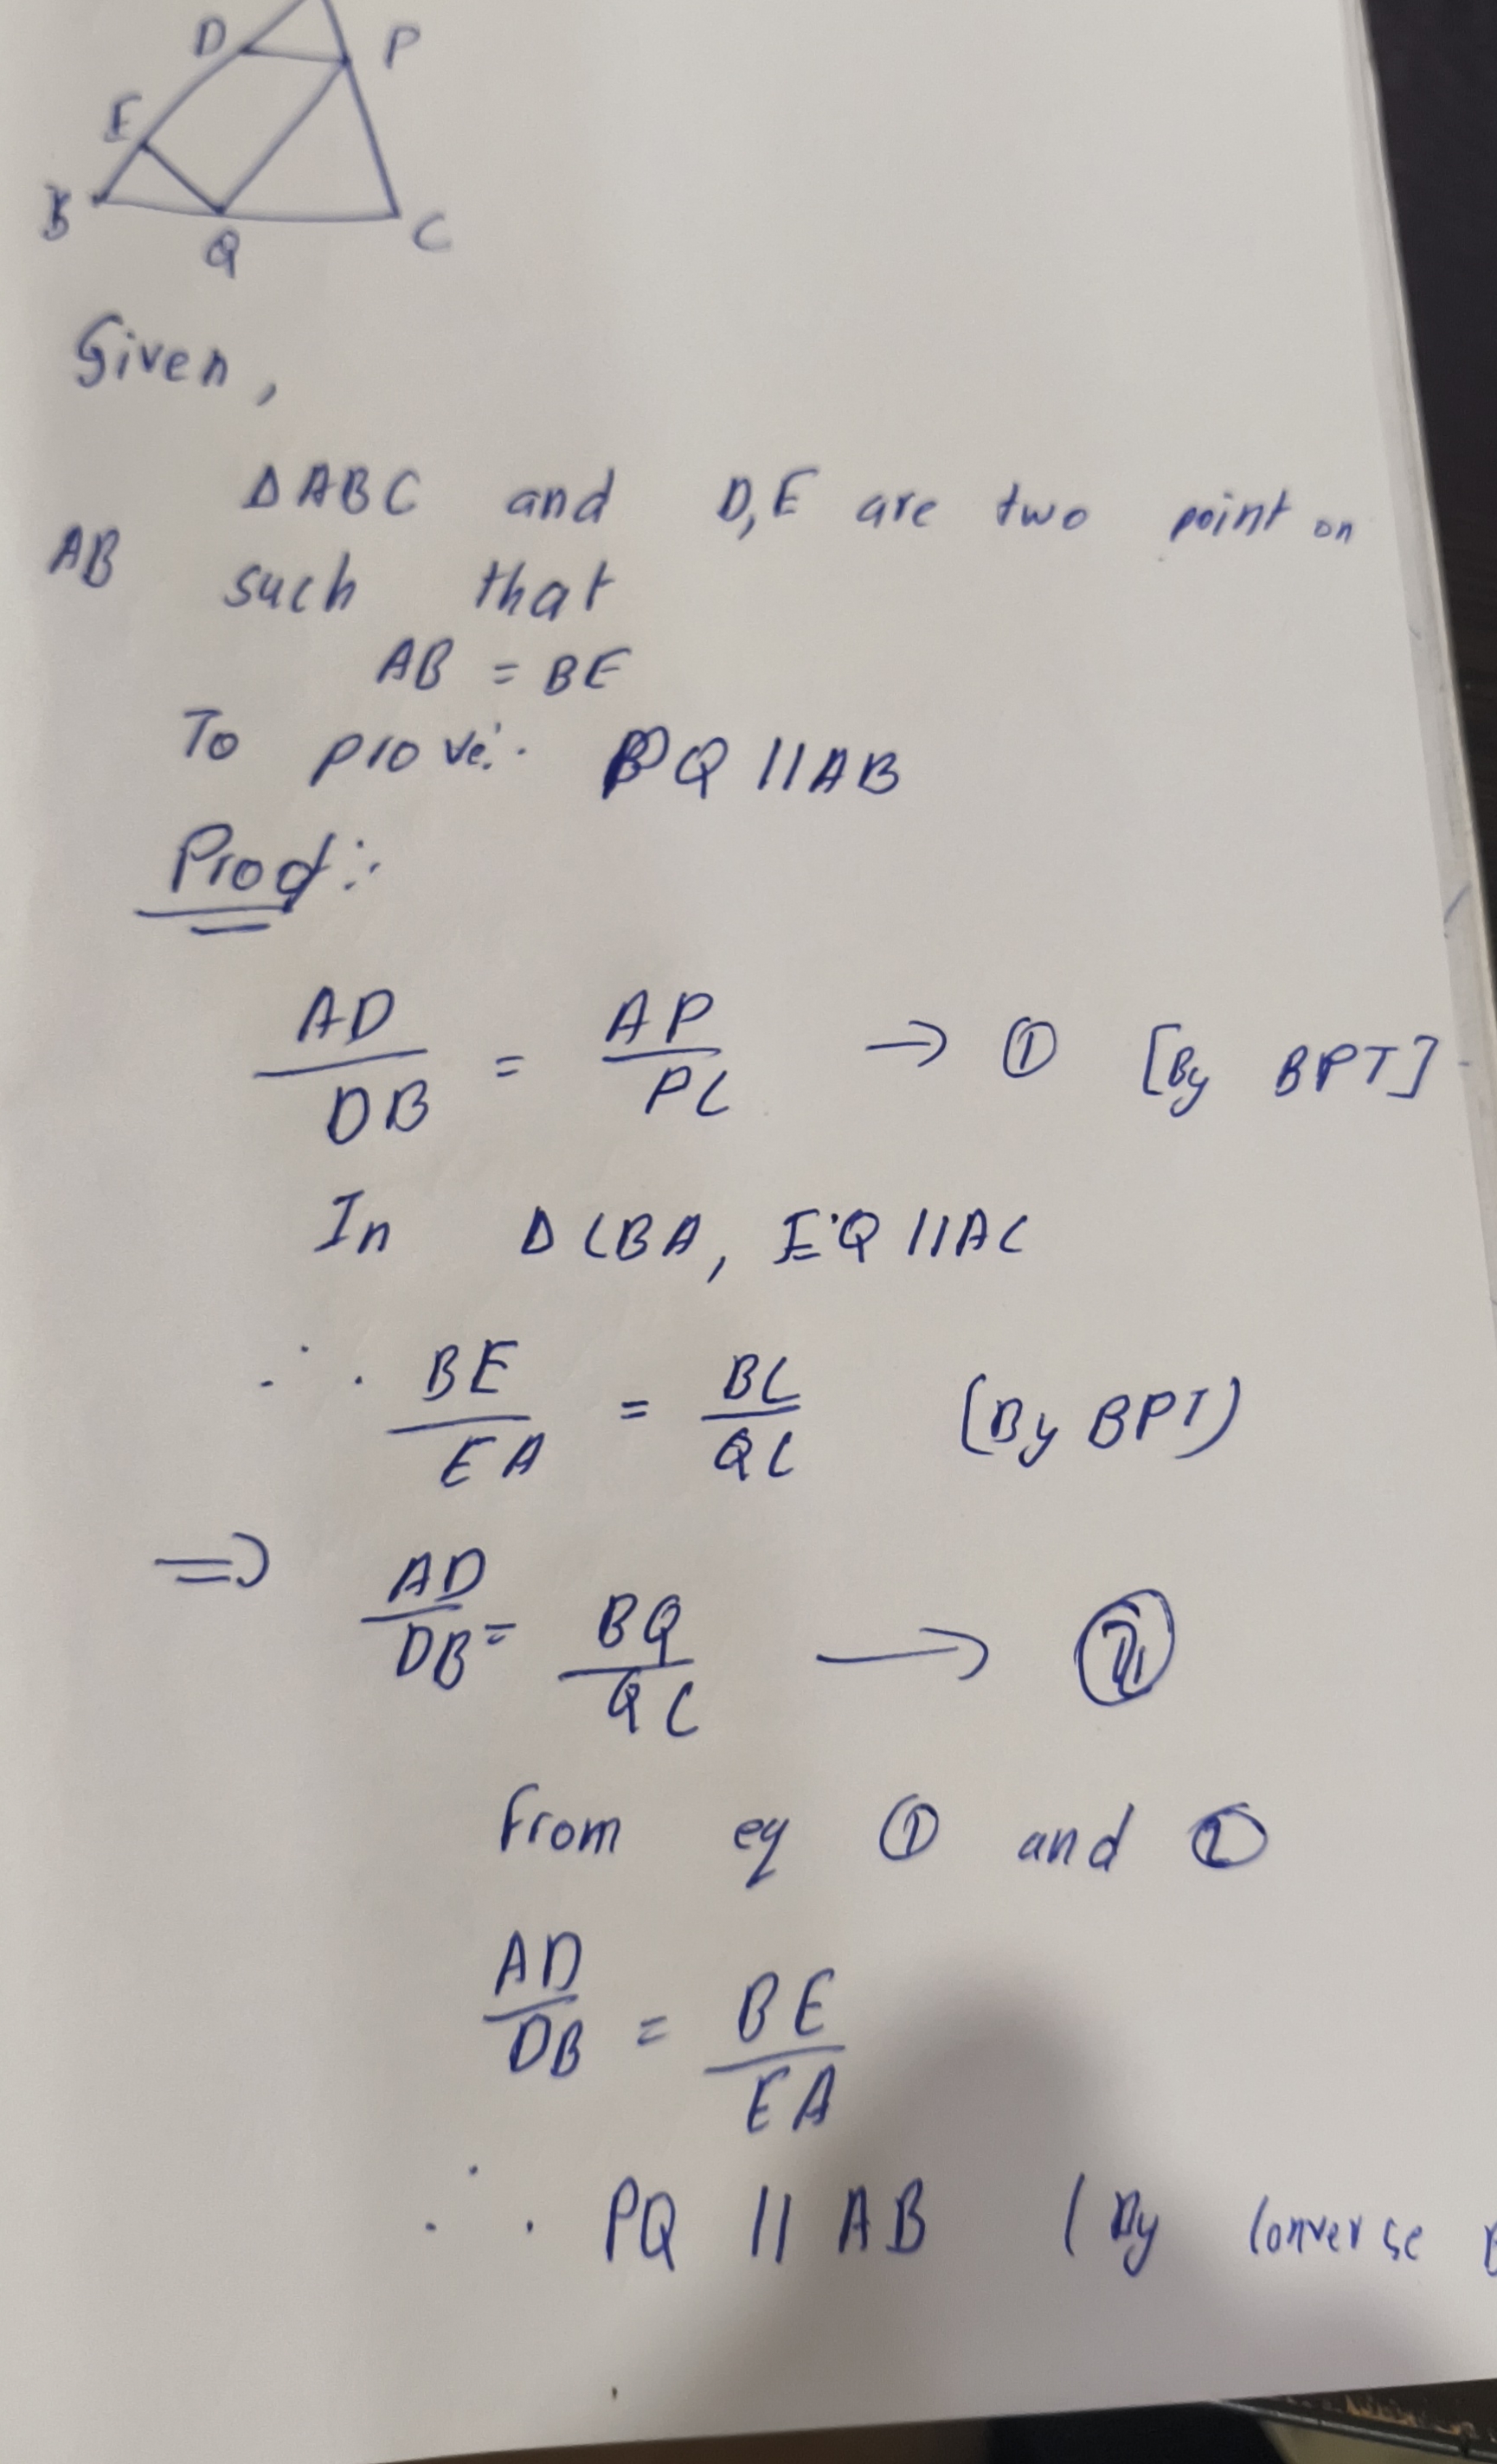 D P
E
B Q C
Given,
ΔABC and D,E are two point on
AB such that
AB = BE
To prove:- PQ || AB
Proof:-
AD/DB = AP/PC → ① [By BPT]
In ΔCBA, EQ || AC
∴ BE/EA = BC/QC (By BPT)
⇒ AD/DB = BQ/QC →
from eq ① and ②
AD/DB = BE/EA
∴ PQ || AB (By converse